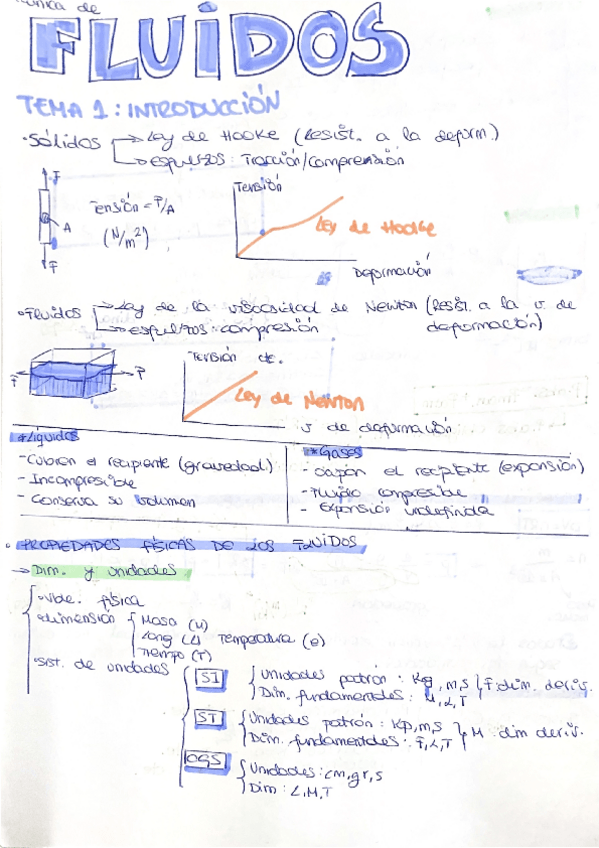 de
FLUIDOS
TEMA 1: INTRODUCCIÓN
• Sólidos → Ley de Hooke (Resist. a la deform.)
→ esfuerzos: Tracción/compresión
F
A
F
Tensión = F/A
(N/m²)
Tensión
Ley de Hooke
Deformación
• Fluidos → Ley de la viscosidad de Newton (Resist. a la v. de deformación)
→ esfuerzos: compresión
F
F
Tensión
Ley de Newton
v de deformación
* Líquidos
- Cubren el recipiente (gravedad)
- Incompresible
- Conserva su volumen
* Gases
- Ocupan el recipiente (expansión)
- Fluido compresible
- Expansión indefinida
• PROPIEDADES FÍSICAS DE LOS FLUIDOS
→ Dim. y unidades
física
• dimensión
Masa (M)
Long (L)
Tiempo (T)
Temperatura (θ)
• Sist. de unidades
SI
Unidades patrón: Kg, m, s
Dim. fundamentales: M, L, T
F: dim. deriv.
ST
Unidades patrón: Kp, m, s
Dim. fundamentales: F, L, T
M: dim deriv.
CGS
Unidades: cm, gr, s
Dim: L, M, T